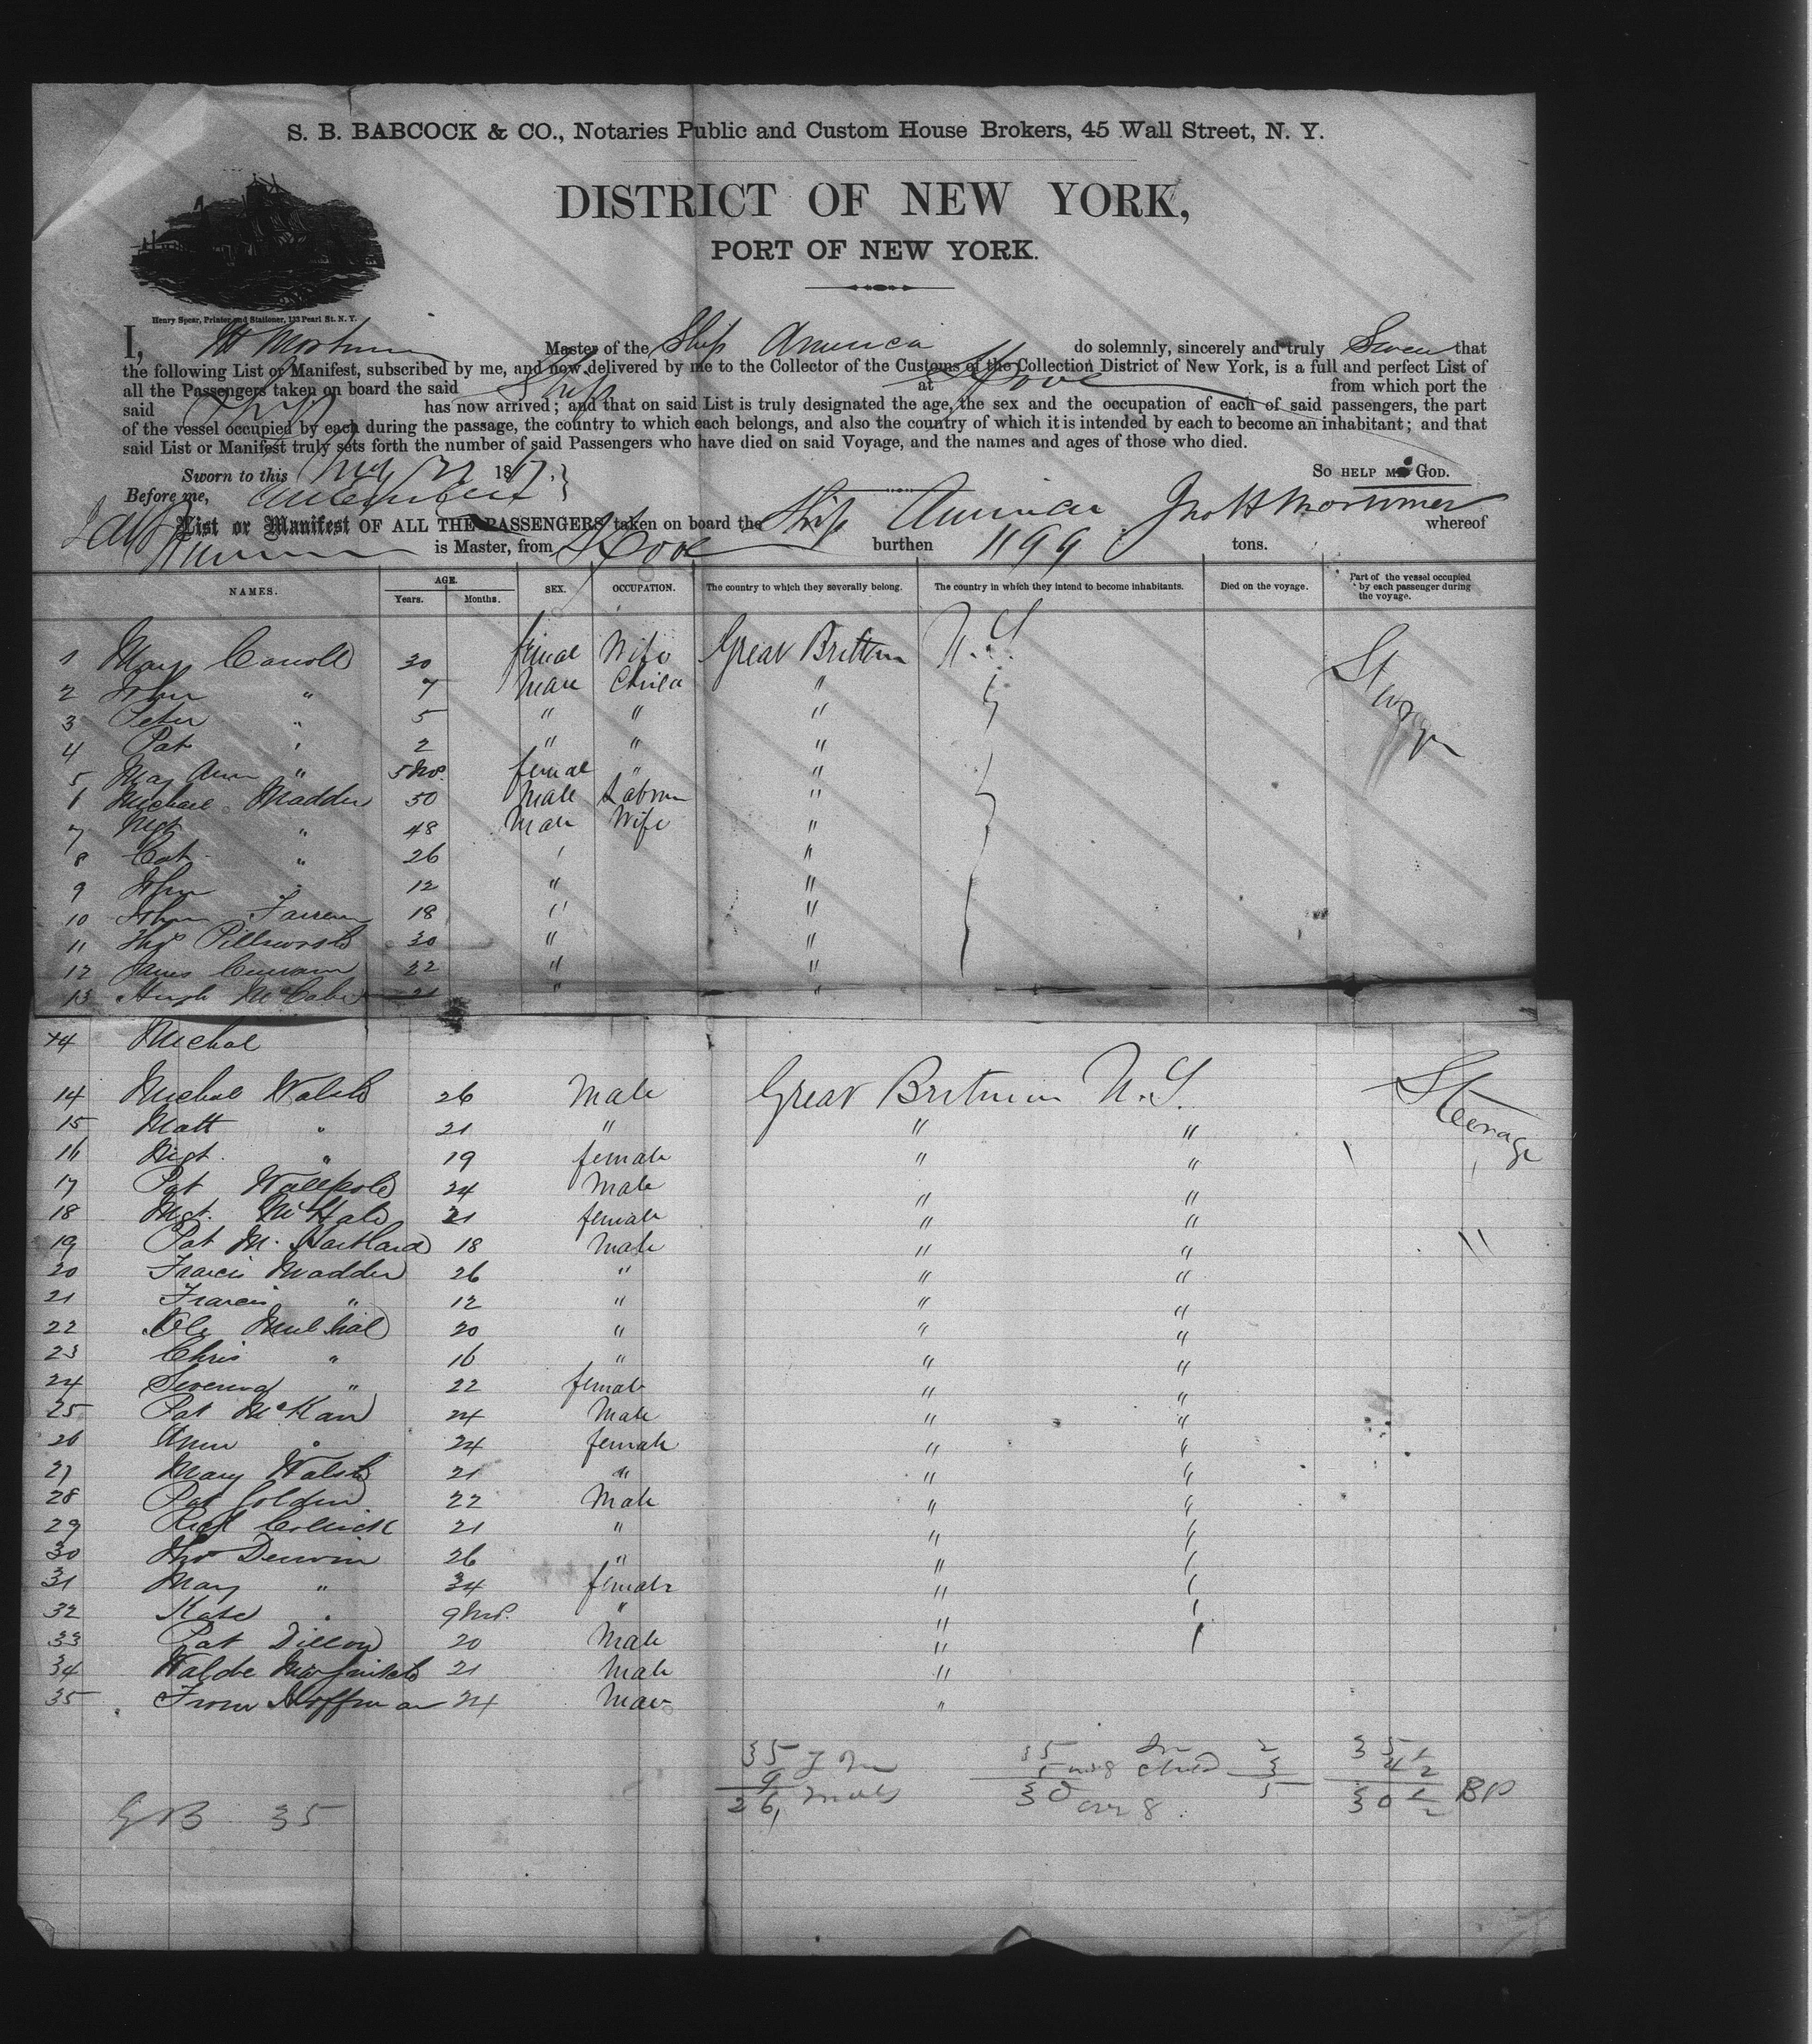 S. B. BABCOCK & CO., Notaries Public and Custom House Brokers, 45 Wall Street, N. Y.
DISTRICT OF NEW YORK,
PORT OF NEW YORK.
Henry Spear, Printer and Stationer, 133 Pearl St. N. Y.
I, Master of the Ship America do solemnly, sincerely and truly that
the following List or Manifest, subscribed by me, and now delivered by me to the Collector of the Customs of the Collection District of New York, is a full and perfect List of
all the Passengers taken on board the said Ship at Lpool from which port the
said Ship has now arrived; and that on said List is truly designated the age, the sex and the occupation of each of said passengers, the part
of the vessel occupied by each during the passage, the country to which each belongs, and also the country of which it is intended by each to become an inhabitant; and that
said List or Manifest truly sets forth the number of said Passengers who have died on said Voyage, and the names and ages of those who died.
Sworn to this 186 So HELP ME GOD.
Before me,
List or Manifest OF ALL THE PASSENGERS taken on board the Ship America Jno H Mortimer whereof
is Master, from Lpool burthen 1199 tons.
NAMES. AGE. SEX. OCCUPATION. The country to which they severally belong. The country in which they intend to become inhabitants. Died on the voyage. Part of the vessel occupied by each passenger during the voyage.
Years. Months.
1 Mary Carroll 30 femal Wife Great Brittan U.S. Steerage
2 John " 7 Male Child "
3 Peter " 5 " " "
4 Pat " 2 " " "
5 May Ann " 5 Mos. femal " "
6 Michael Madden 50 Male Labour "
7 Mgt " 48 Male Wife "
8 Cat " 26 " "
9 John " 12 " "
10 John Farren 18 " "
11 Thos 30 " "
12 James 22 " "
13 Hugh McCabe 21 " "
14 Michal
14 Michal Walsh 26 Male Great Britain U.S. Steerage
15 Matt " 21 " " "
16 Mgt. " 19 female " "
17 Pat Wallpole 24 Male " "
18 Mgt. McHale 21 female " "
19 Pat M. Hartland 18 Male " "
20 Francis Madden 26 " " "
21 Francis " 12 " " "
22 Mulhal 20 " " "
23 Chris " 16 " " "
24 " 22 female " "
25 Pat McKan 24 Male " "
26 Ann " 24 female " "
27 Mary Walsh 21 " " "
28 Pat Golden 22 Male " "
29 21 " " "
30 Thos 26 " " "
31 Mary " 34 female " "
32 Kate " 9 Mos. " " "
33 Pat Dillon 20 Male " "
34 21 Male "
35 Hoffman 24 Male "
35
9 fem
26 Males
35
5 und 8
30 over 8
2
3
5
35
4 1/2
30 1/2 BP
GB 35